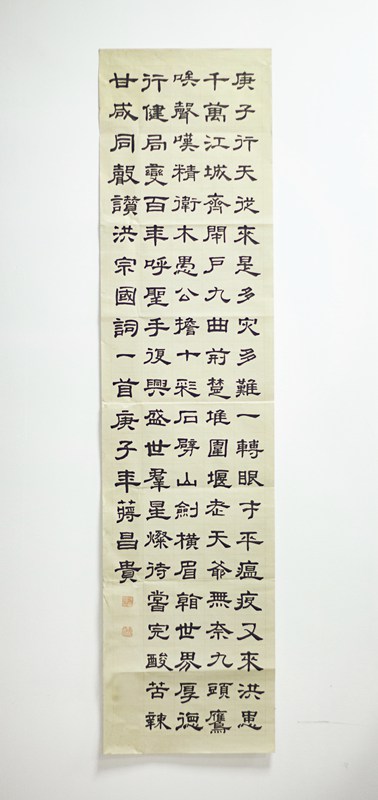 庚子行天從來是多灾多難一轉眼才平瘟疫又來洪患
千萬江城齊閉戶九曲荊楚堆圍堰老天爺無奈九頭鷹
唉聲嘆精衛木愚公擔十彩石劈山劍橫眉翰世界厚德
行健局變百年呼聖手復興盛世羣星燦待嘗完酸苦辣
甘咸同聲讚洪宗國詞一首庚子年蔣昌貴